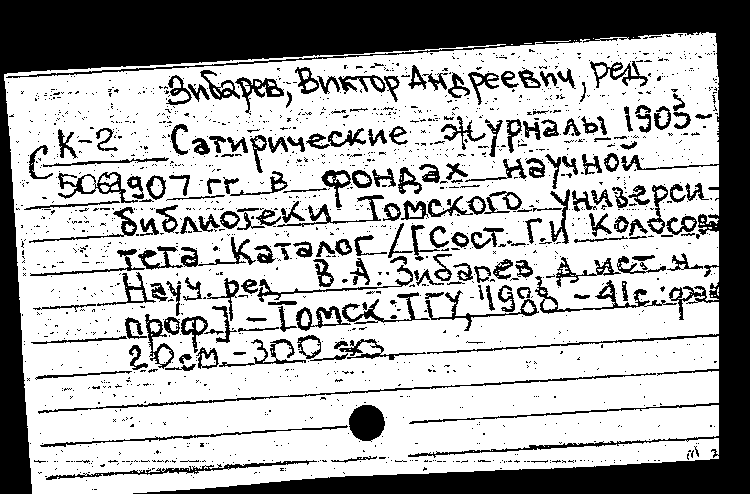 Зибарев, Виктор Андреевич, ред.
К-2 Сатирические журналы 1905-
С 5069 1907 гг. в фондах научной
библиотеки Томского универси-
тета : Каталог / [Сост. Г.И. Колосова
Науч. ред. В.А. Зибарев, д.ист.н.,
проф.] – Томск : ТГУ, 1988 – 41с. : фак
20см. – 300 экз.